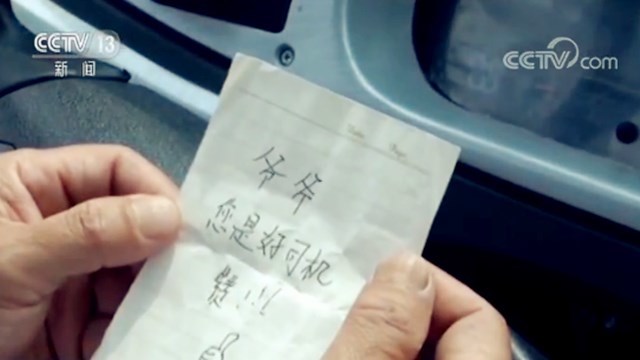 CCTV 13
新闻
CCTV.com
Date Page
爷爷
您是好司机
赞!!!